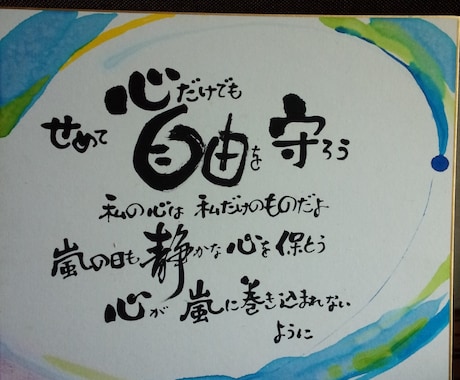 せめて心だけでも
自由を守ろう
私の心は 私だけのものだよ
嵐の日も静かな心を保とう
心が嵐に巻き込まれない
ように